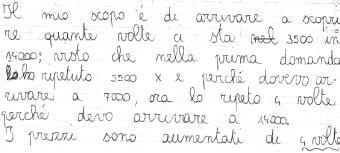 Il mio scopo è di arrivare a scopri
re quante volte ci sta nel 3500 in
14000; visto che nella prima domanda
ho ripetuto 3500 x e perché dovevo ar-
rivare a 7000, ora lo ripeto 4 volte
perché devo arrivare a 14000.
I prezzi sono aumentati di 4 volte